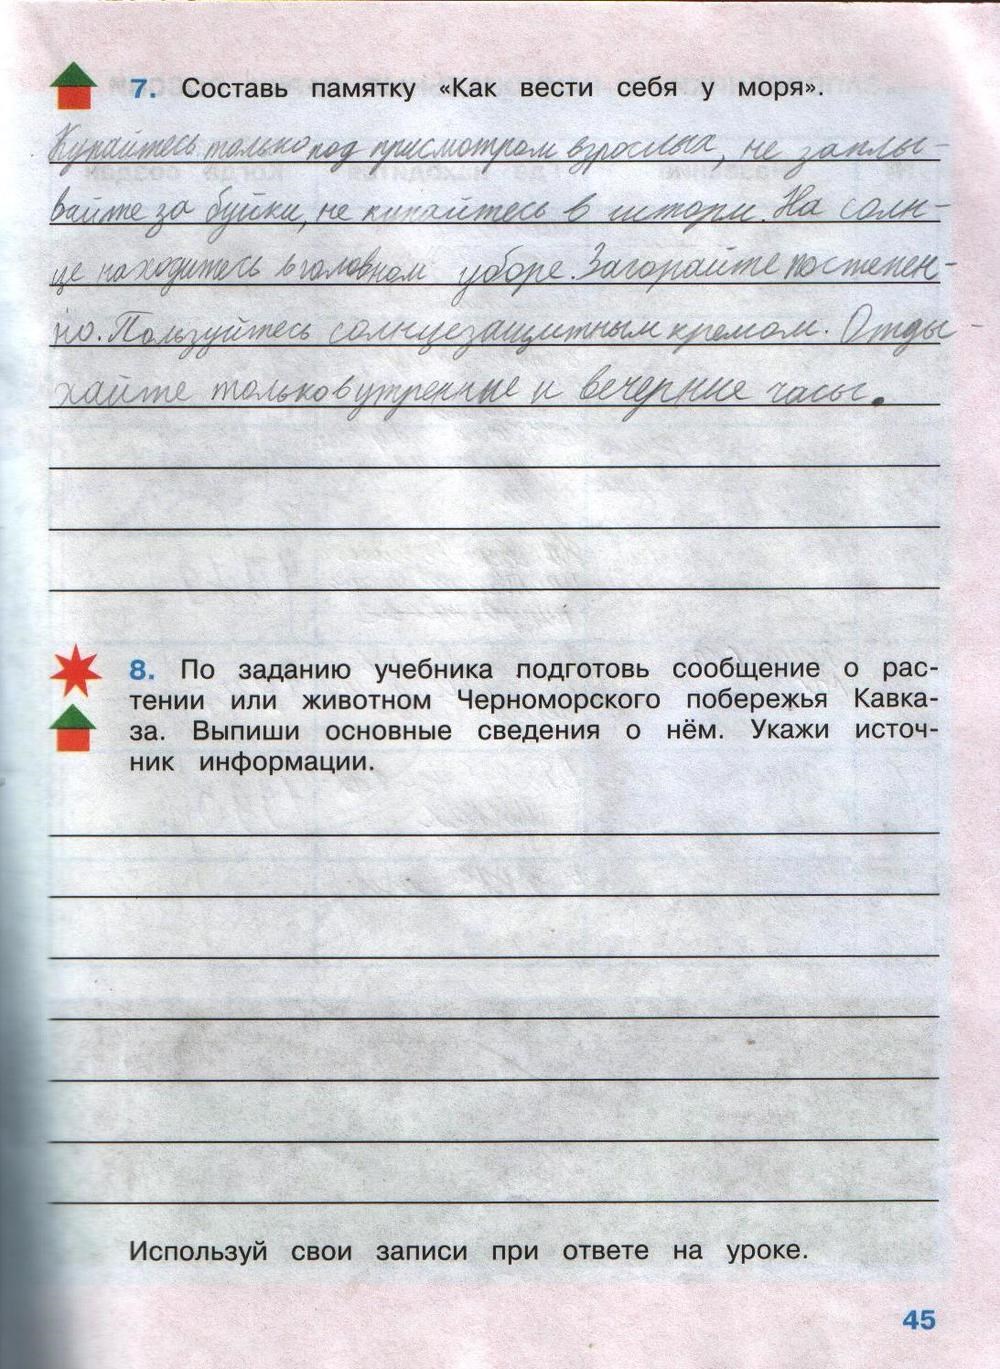 7. Составь памятку «Как вести себя у моря».
Купайтесь только под присмотром взрослых, не заплы-
вайте за буйки, не купайтесь в шторм. На солн-
це находитесь в головном уборе. Загорайте постепен-
но. Пользуйтесь солнцезащитным кремом. Отды-
хайте только в утренние и вечерние часы.
8. По заданию учебника подготовь сообщение о рас-
тении или животном Черноморского побережья Кавка-
за. Выпиши основные сведения о нём. Укажи источ-
ник информации.
Используй свои записи при ответе на уроке.
45